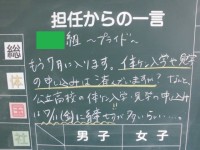 担任からの一言
組 〜プライド〜
もう7月に入ります。体験入学や見学
の申し込みは済んでいますか？なんと、
公立高校の体験入学・見学の申し込み
は7/11(金)に締切が多いらしい…。
総
体
国
社
男子 女子